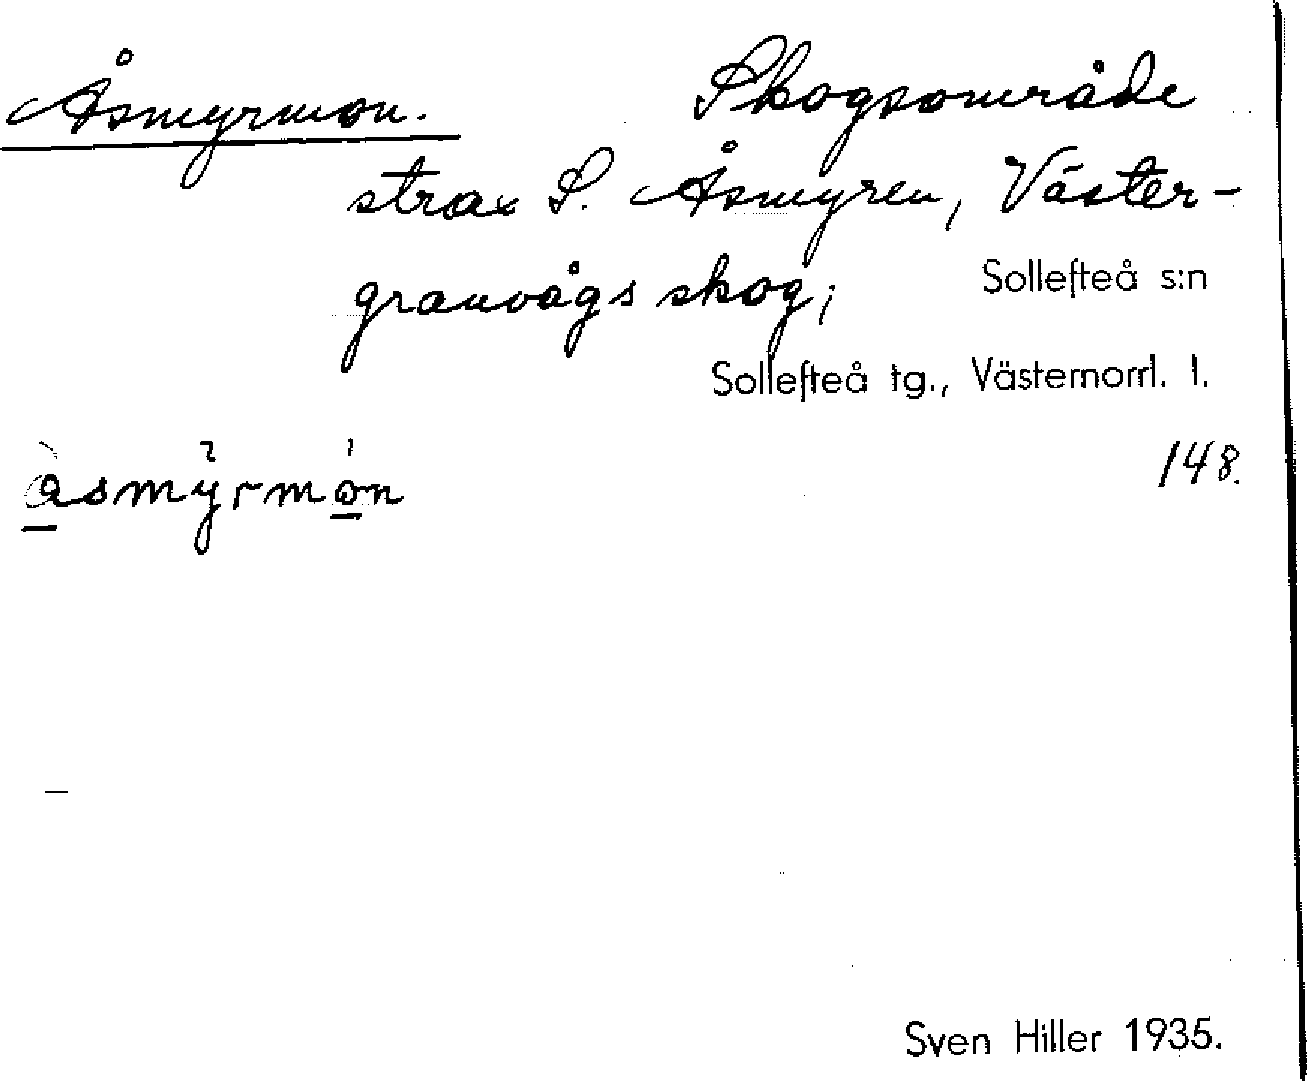 Åsmyrmon. Skogsområde
strax S. Åsmyren, Väster-
granvågs skog; Sollefteå s:n
Sollefteå tg., Västernorrl. l.
148.
åsmyrmon
Sven Hiller 1935.